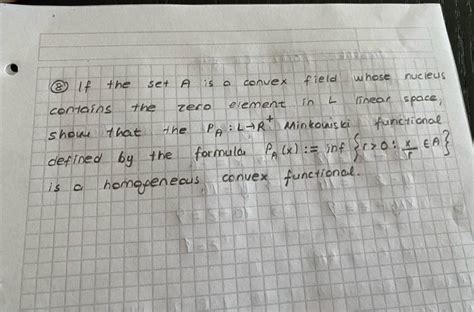 ⑧ If the set A is a convex field whose nucleus
contains the zero element in L linear space,
show that the P_A : L→R⁺ Minkowski functional
defined by the formula P_A(x) := inf { r>0 : x/r ∈ A }
is a homogeneous convex functional.